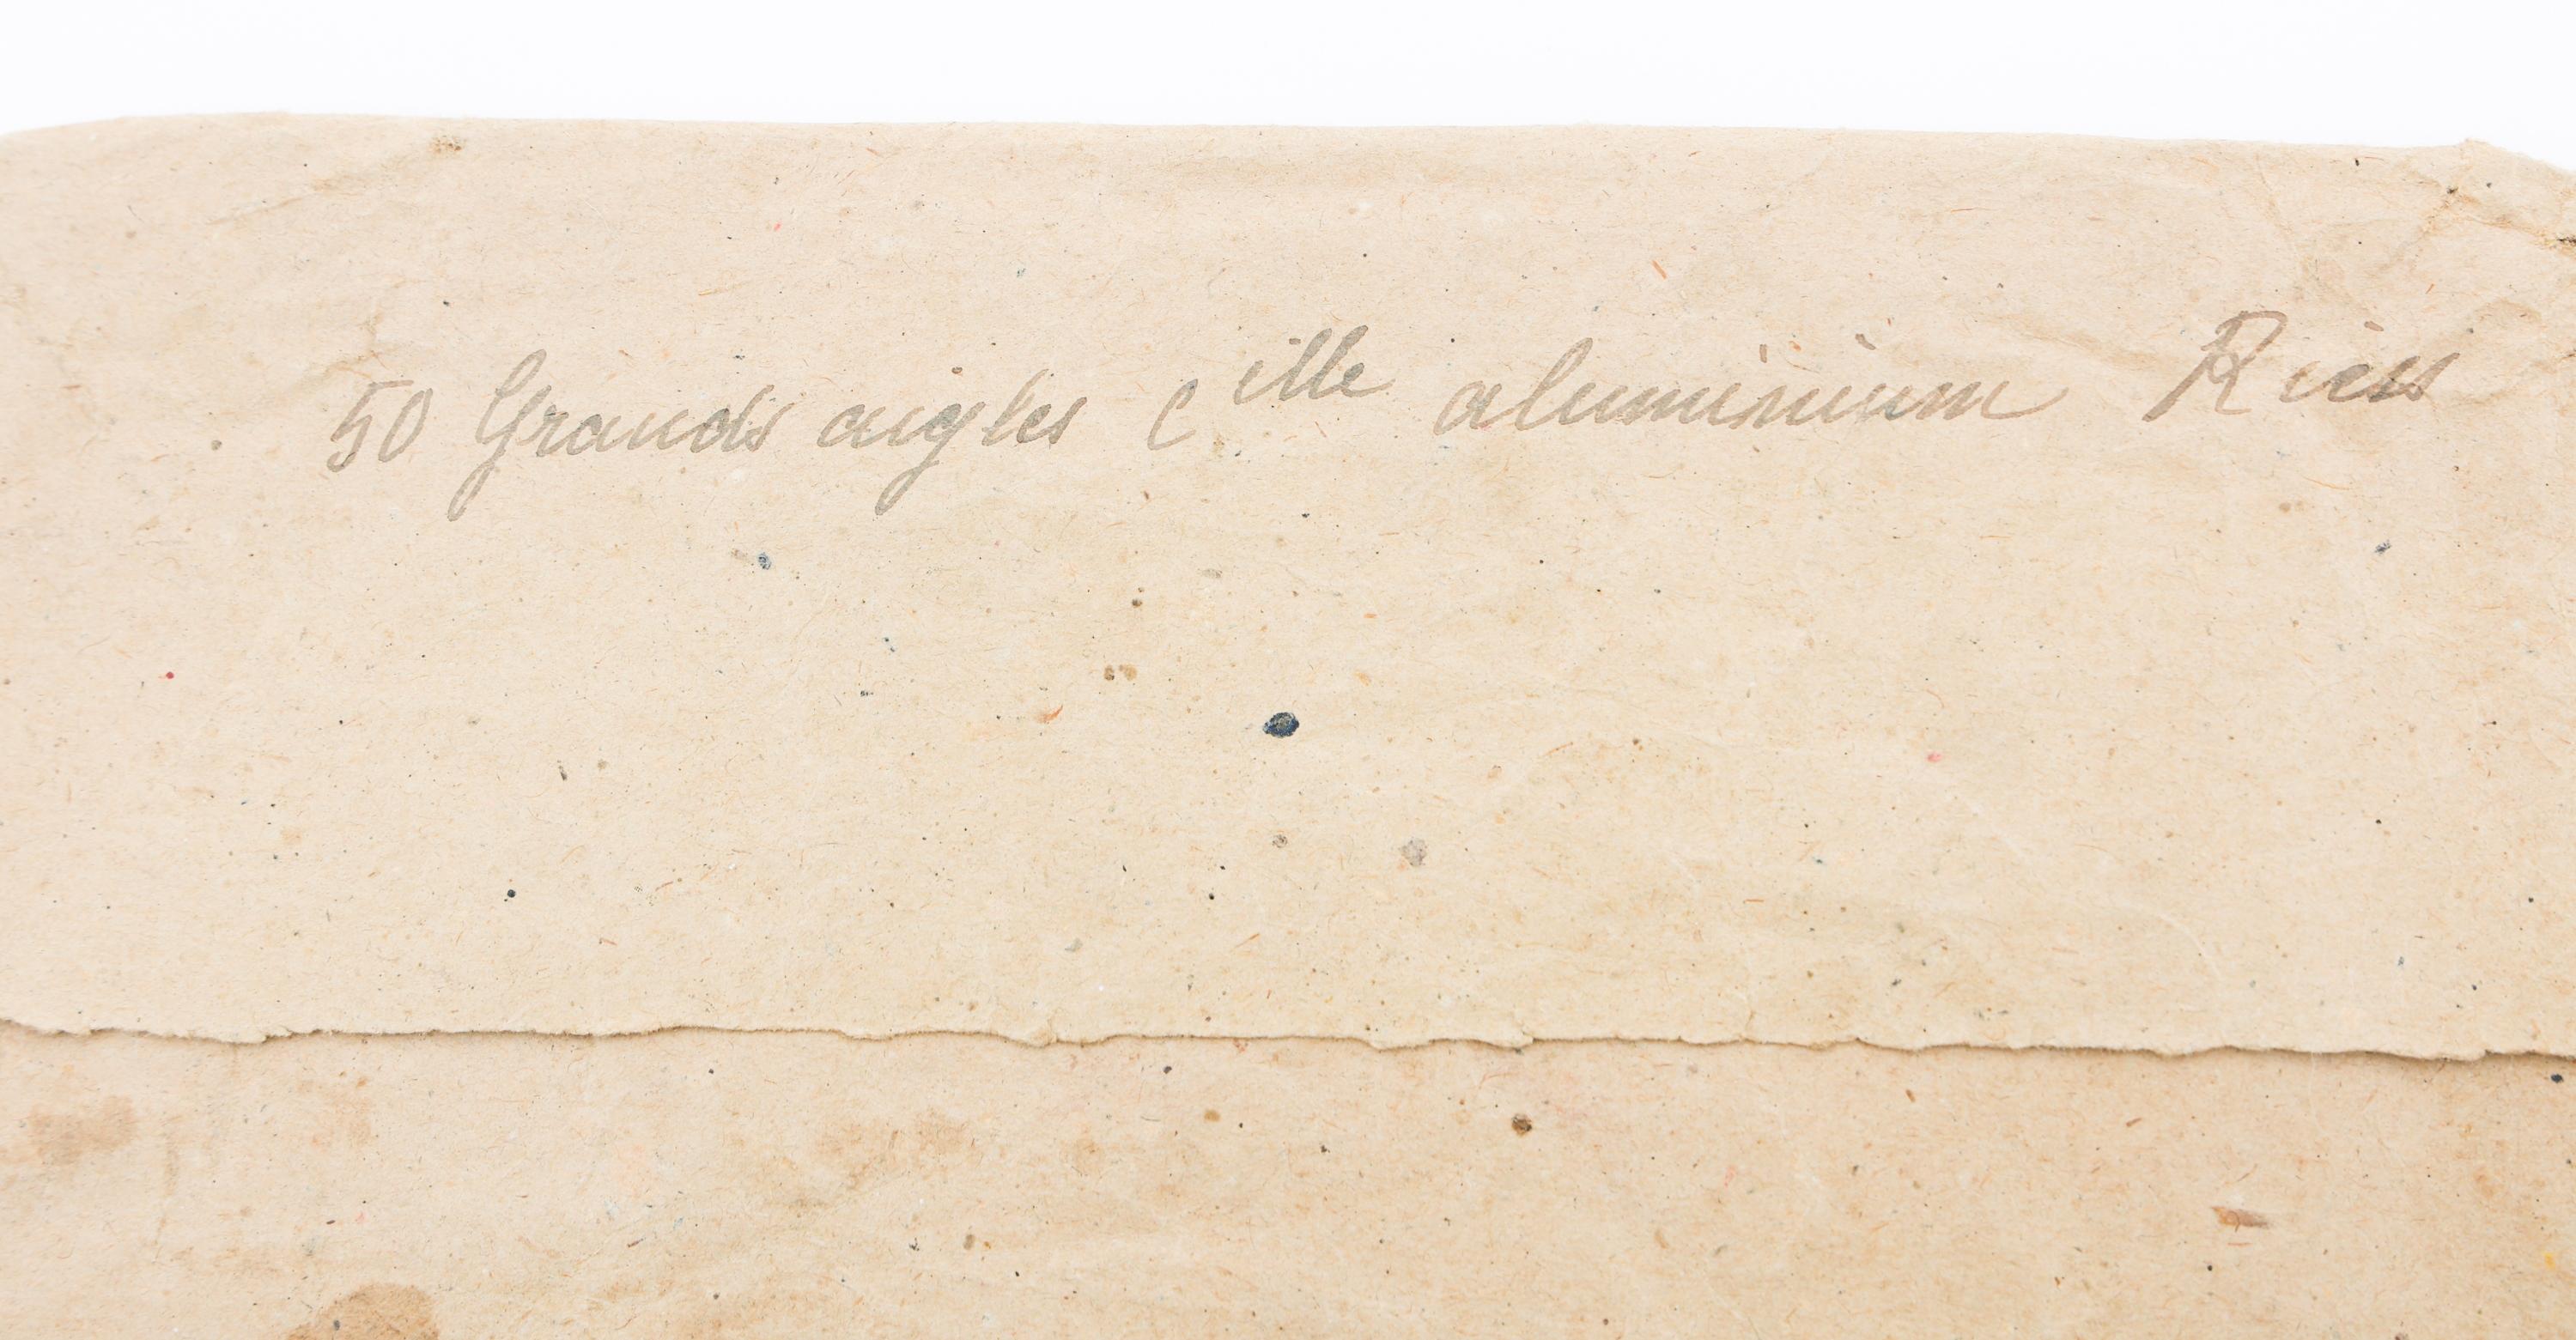 50 Grands aigles C ille aluminium Riess